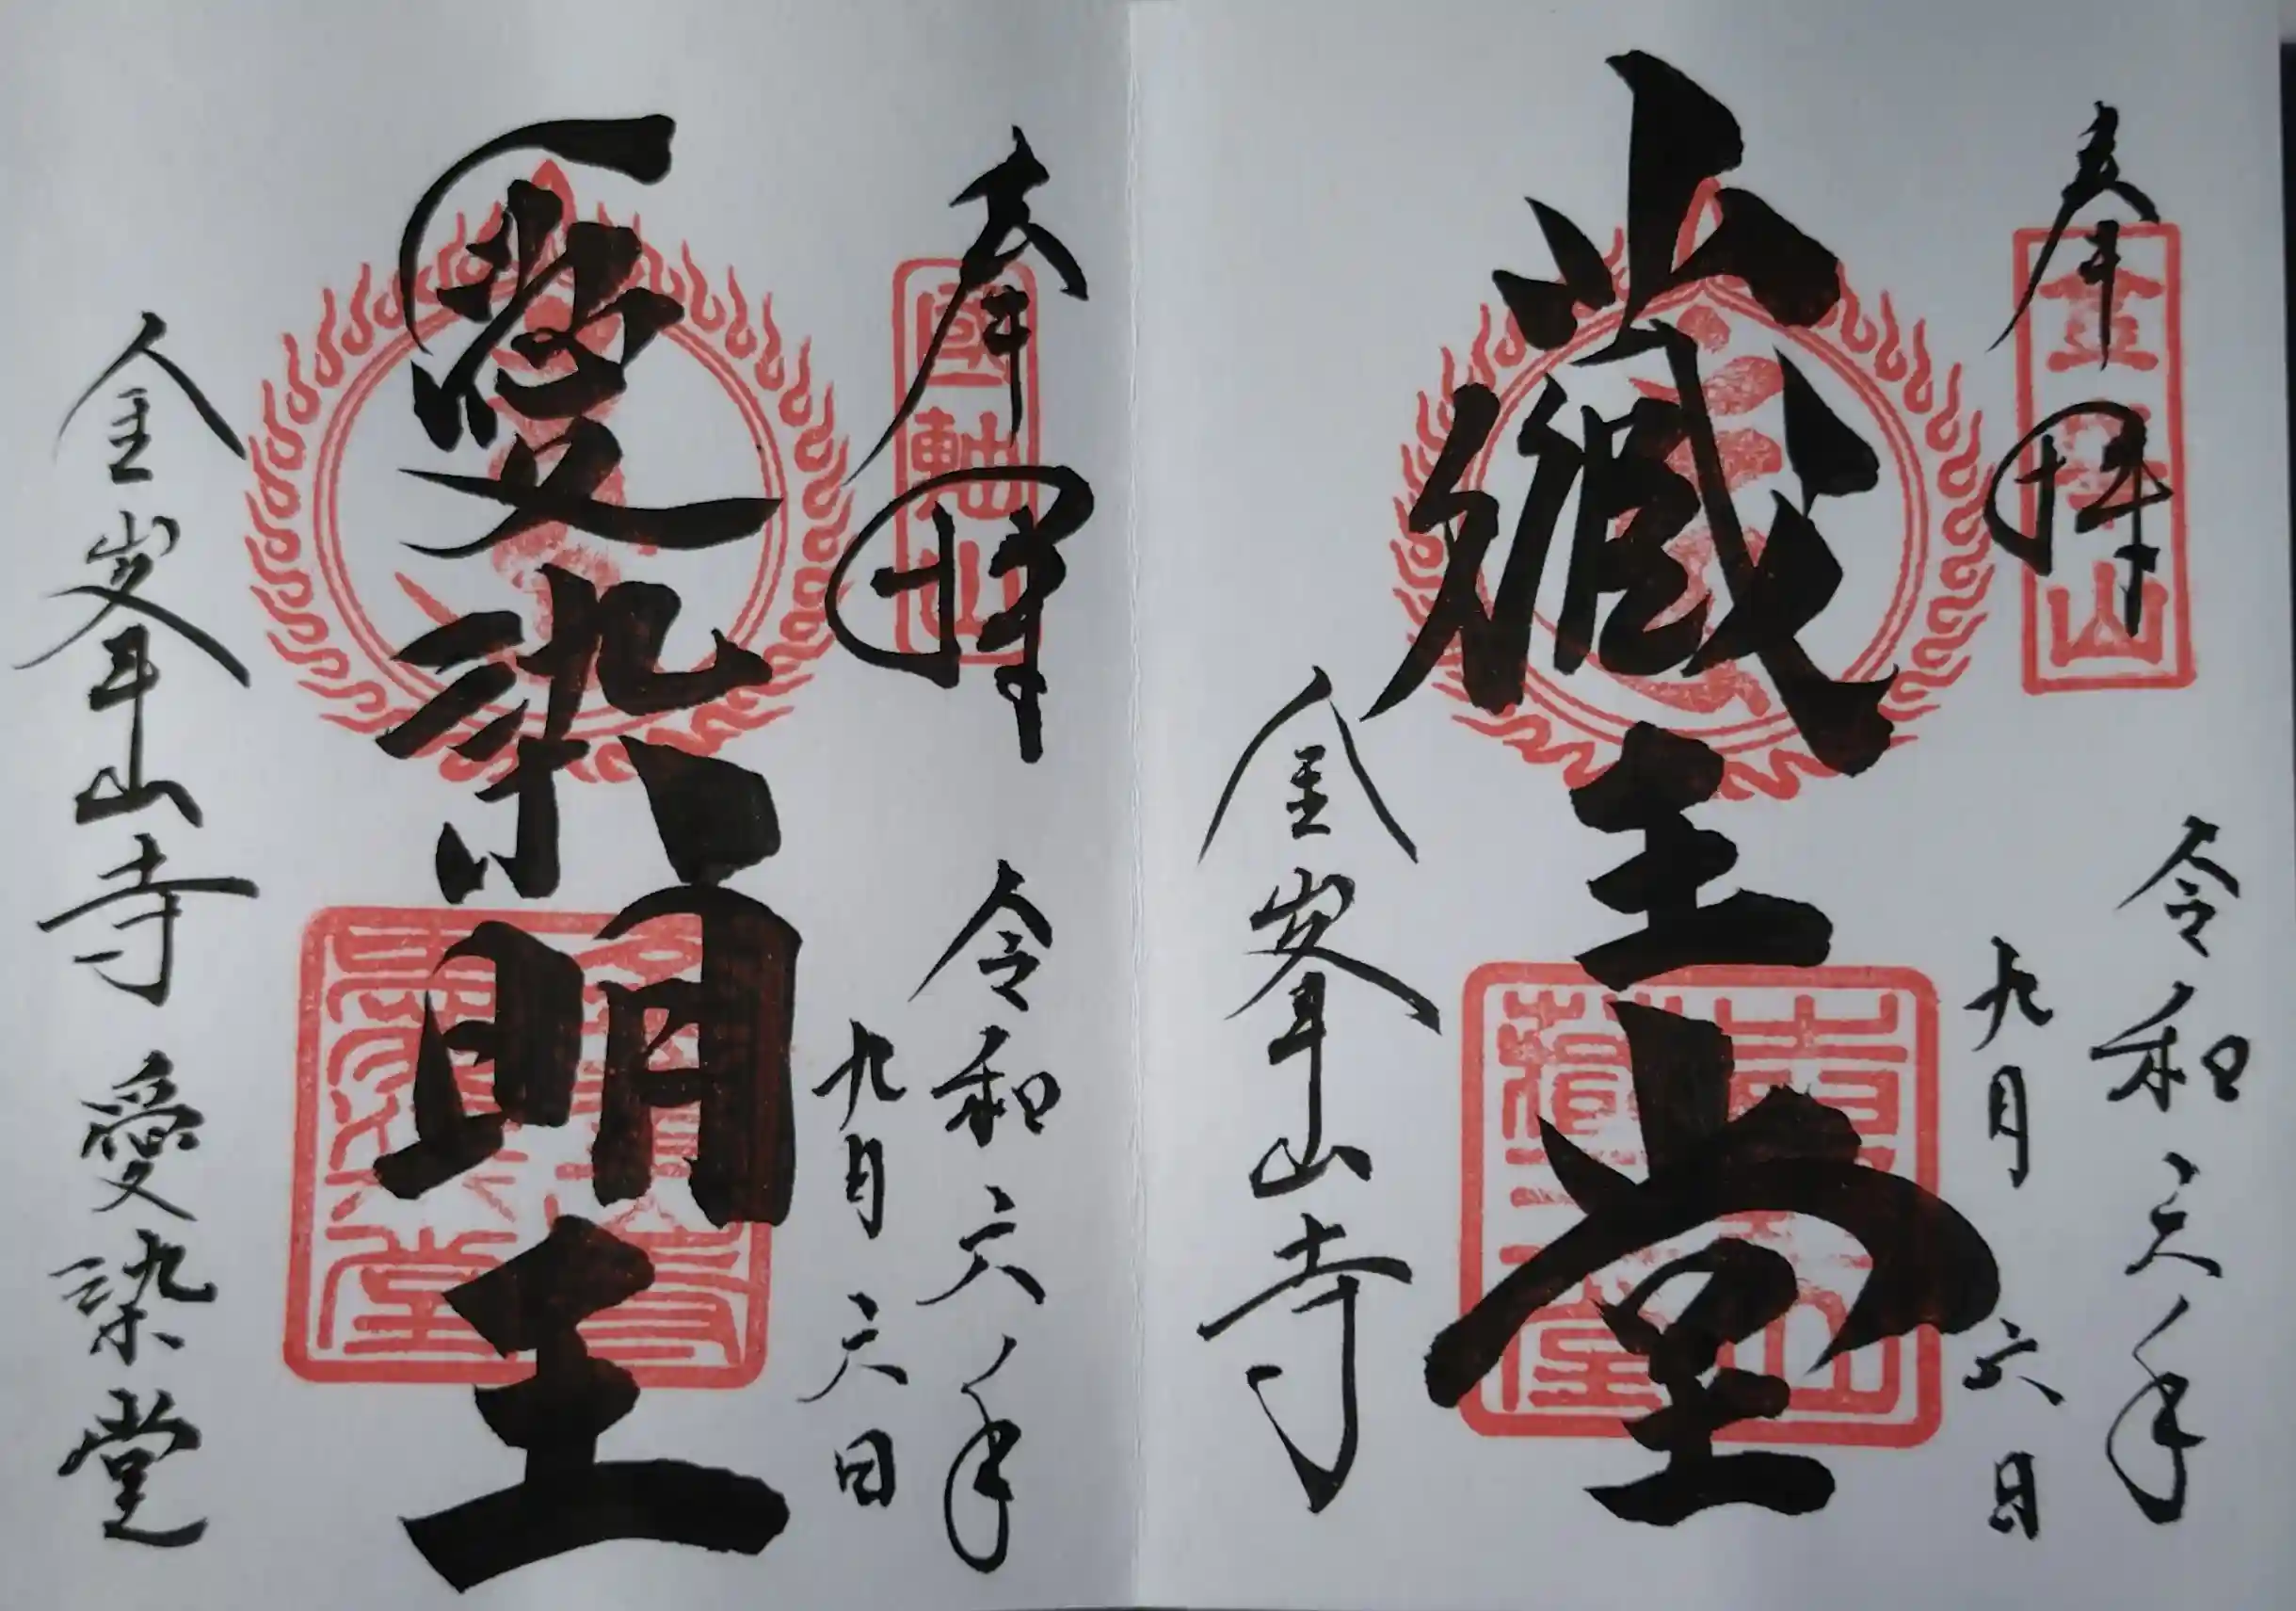 奉拝
令和六年
九月六日
蔵王堂
金峯山寺
奉拝
令和六年
九月六日
愛染明王
金峯山寺 愛染堂
國軸山